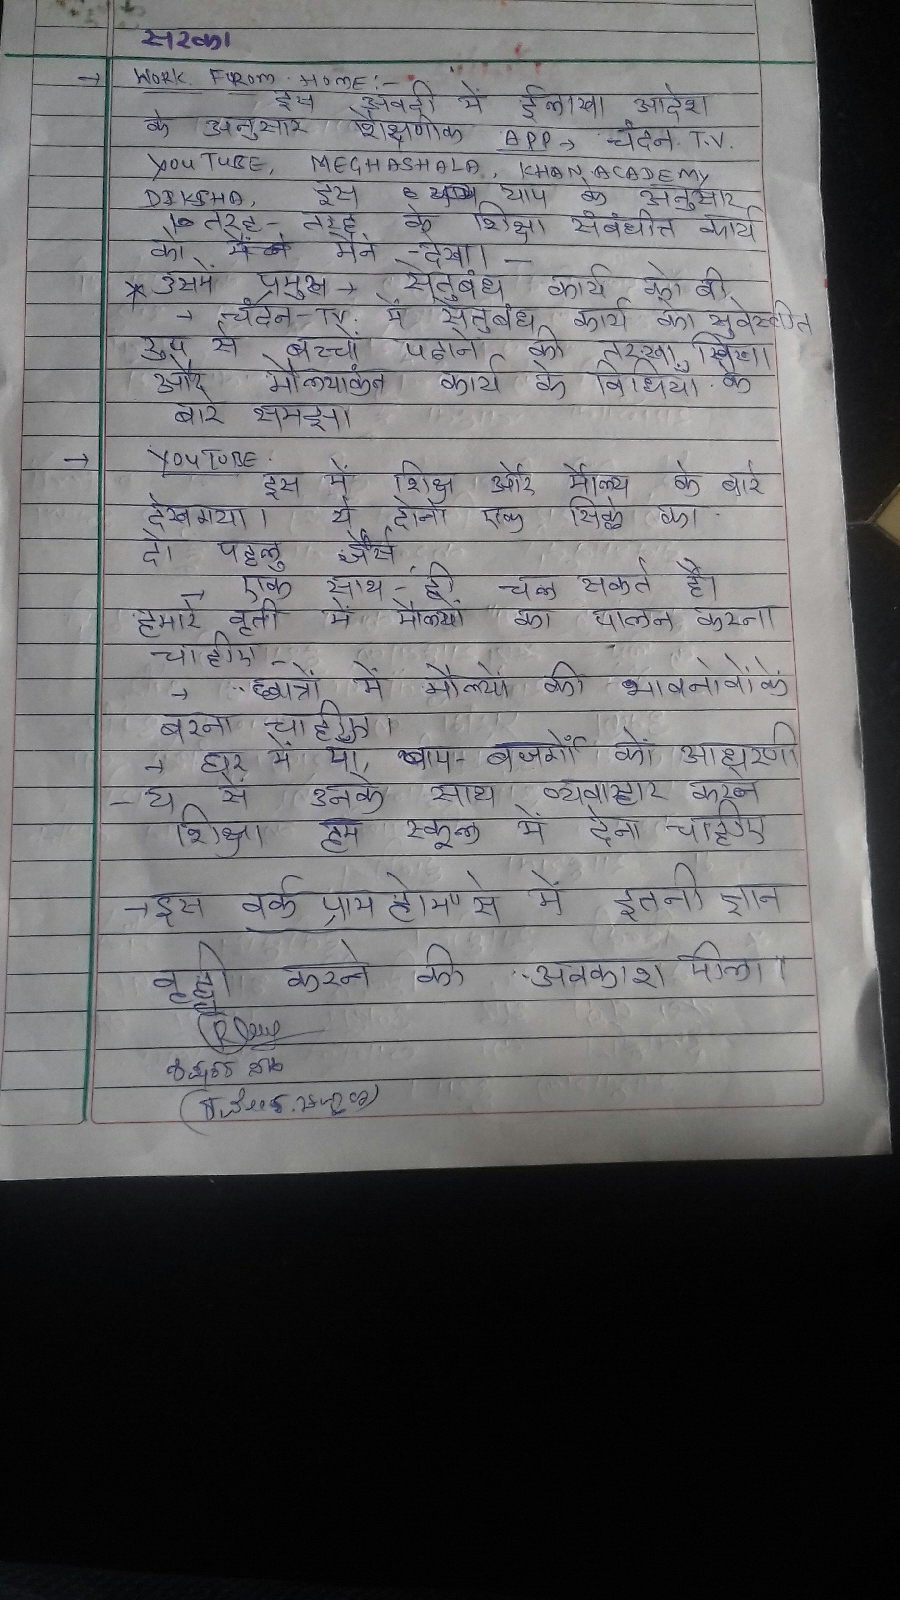 सरका
→ WORK FROM HOME:-
इस अवदी में ईलाखा आदेश
के अनुसार शैक्षणीक APP → चंदन T.V.
YOUTUBE, MEGHASHALA, KHAN ACADEMY
DIKSHA, इस याप के अनुसार
तरह-तरह के शिक्षा संबंधीत कार्य
को मैने देखा। —
* उसमें प्रमुख → सेतुबंध कार्य को बी
→ चंदन-T.V. में सेतुबंध कार्य का सुवेस्तीत
रुप से बच्चों पढान की तरखा, सिखा
और मौल्यांकन कार्य के विधिया के
बारे समझा
→ YOUTUBE.
इस में शिक्ष और मौल्य के बारे
देखागया। ये दोनो एक सिके का
दो पहलु जैसे
→ एक साथ-ही चल सकते है।
हमारे वृती में मौल्यों का पालन करना
चाहीए -
→ छात्रों में मौल्यों की भावनोवोंके
बरना चाहीए।
→ घर में मा, बाप-बजर्गों को आधरणी
- य से उनके साथ व्यवाहार करन
शिक्षा हम स्कूल में देना चाहीए
→ इस वर्क प्राम होम से में इतनी ज्ञान
वृद्धी करने की अवकाश मीला।